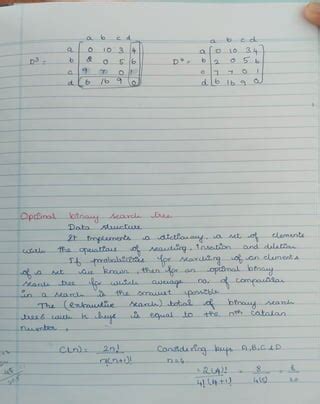 a b c d a b c d
a 0 10 3 4 a 0 10 3 4
D³= b 2 0 5 6 D⁴= b 2 0 5 6
c 7 0 1 c 7 7 0 1
d 6 16 9 0 d 6 16 9 0
Optimal binary search tree
Data structure
It implements a dictionary, a set of elements
with the operations of searching, insertion and deletion
If probabilities for searching of an elements
of a set are known, then for an optimal binary
search tree for which average no. of comparison
in a search is the smallest possible
The (exhaustive search) total of binary search
trees with n keys is equal to the nth catalan
number,
C(n) = 2n! Considering keys A,B,C & D
n!(n+1)! n=4
= 2(4)! = 8 = 8
4!(4+1)! 4(5) 20